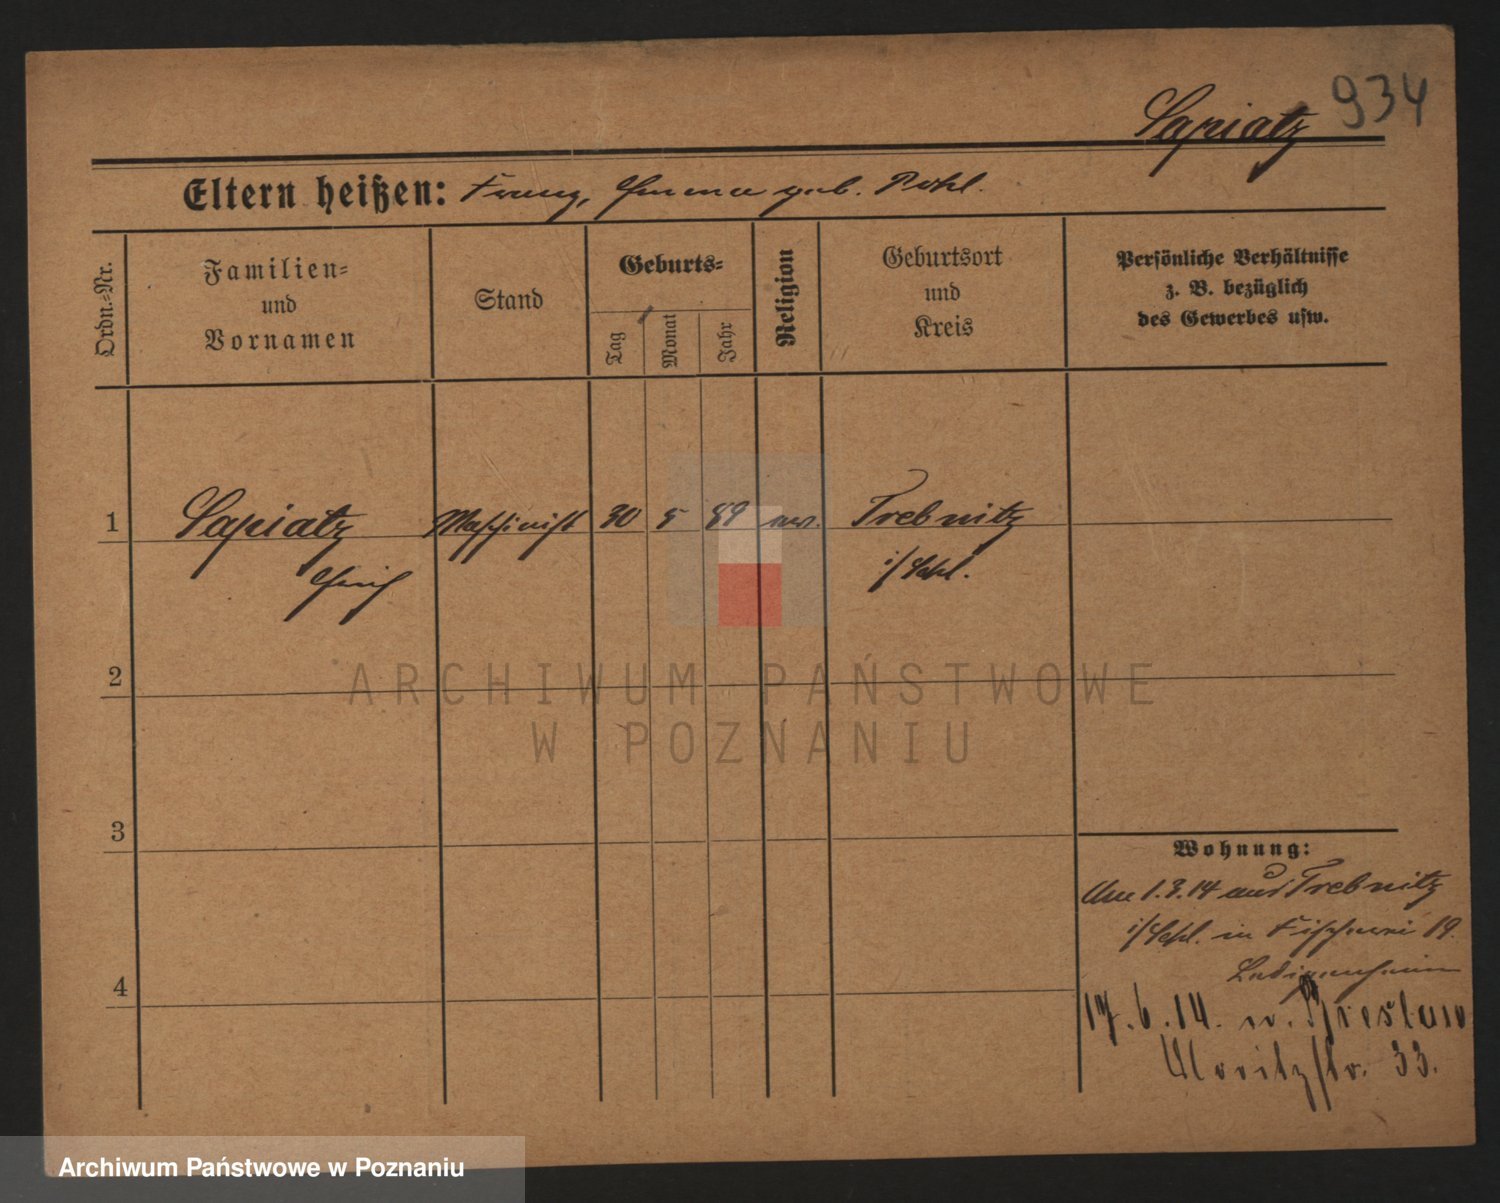 934
Sapiatz
Eltern heißen: Franz, Emma geb. Pohl.
Ordn.=Nr.
Familien=
und
Vornamen
Stand
Geburts=
Tag
Monat
Jahr
Religion
Geburtsort
und
Kreis
Persönliche Verhältnisse
z. B. bezüglich
des Gewerbes usw.
1 Sapiatz Maschinist 30 5 89 ev. Trebnitz
Erich i/Schl.
2
3
4
Wohnung:
Am 1.3.14 aus Trebnitz
i/Schl. in Fischerei 19.
Ledigenheim
17.6.14. n. Breslau
Moritzstr. 33.
ARCHIWUM PAŃSTWOWE
W POZNANIU
Archiwum Państwowe w Poznaniu